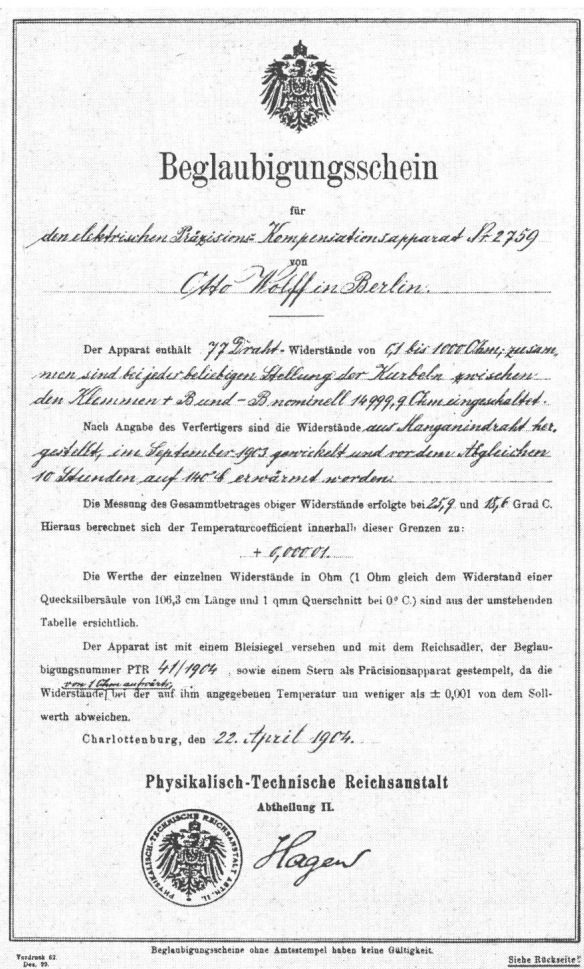 Beglaubigungsschein
für
den elektrischen Präzisions-Kompensationsapparat Nr. 2759
von
Otto Wolff in Berlin.
Der Apparat enthält 77 Draht-Widerstände von 0,1 bis 1000 Ohm; zusam,
men sind bei jeder beliebigen Stellung der Kurbeln zwischen
den Klemmen + B und - B nominell 14999,9 Ohm eingeschaltet.
Nach Angabe des Verfertigers sind die Widerstände aus Manganindraht her,
gestellt, im September 1903 gewickelt und vor dem Abgleichen
10 Stunden auf 140° erwärmt worden.
Die Messung des Gesammtbetrages obiger Widerstände erfolgte bei 25,9 und 15,6 Grad C.
Hieraus berechnet sich der Temperaturcoefficient innerhalb dieser Grenzen zu:
+ 0,00001.
Die Werthe der einzelnen Widerstände in Ohm (1 Ohm gleich dem Widerstand einer
Quecksilbersäule von 106,3 cm Länge und 1 qmm Querschnitt bei 0° C.) sind aus der umstehenden
Tabelle ersichtlich.
Der Apparat ist mit einem Bleisiegel versehen und mit dem Reichsadler, der Beglau-
bigungsnummer PTR 41/1904, sowie einem Stern als Präcisionsapparat gestempelt, da die
von 1 Ohm aufwärts
Widerstände bei der auf ihm angegebenen Temperatur um weniger als ± 0,001 von dem Soll-
werth abweichen.
Charlottenburg, den 22. April 1904.
Physikalisch-Technische Reichsanstalt
Abtheilung II.
PHYSIKALISCH-TECHNISCHE REICHSANSTALT ABTH. II.
Hagen
Beglaubigungsscheine ohne Amtsstempel haben keine Gültigkeit.
Vordruck 62.
Dez. 99.
Siehe Rückseite!